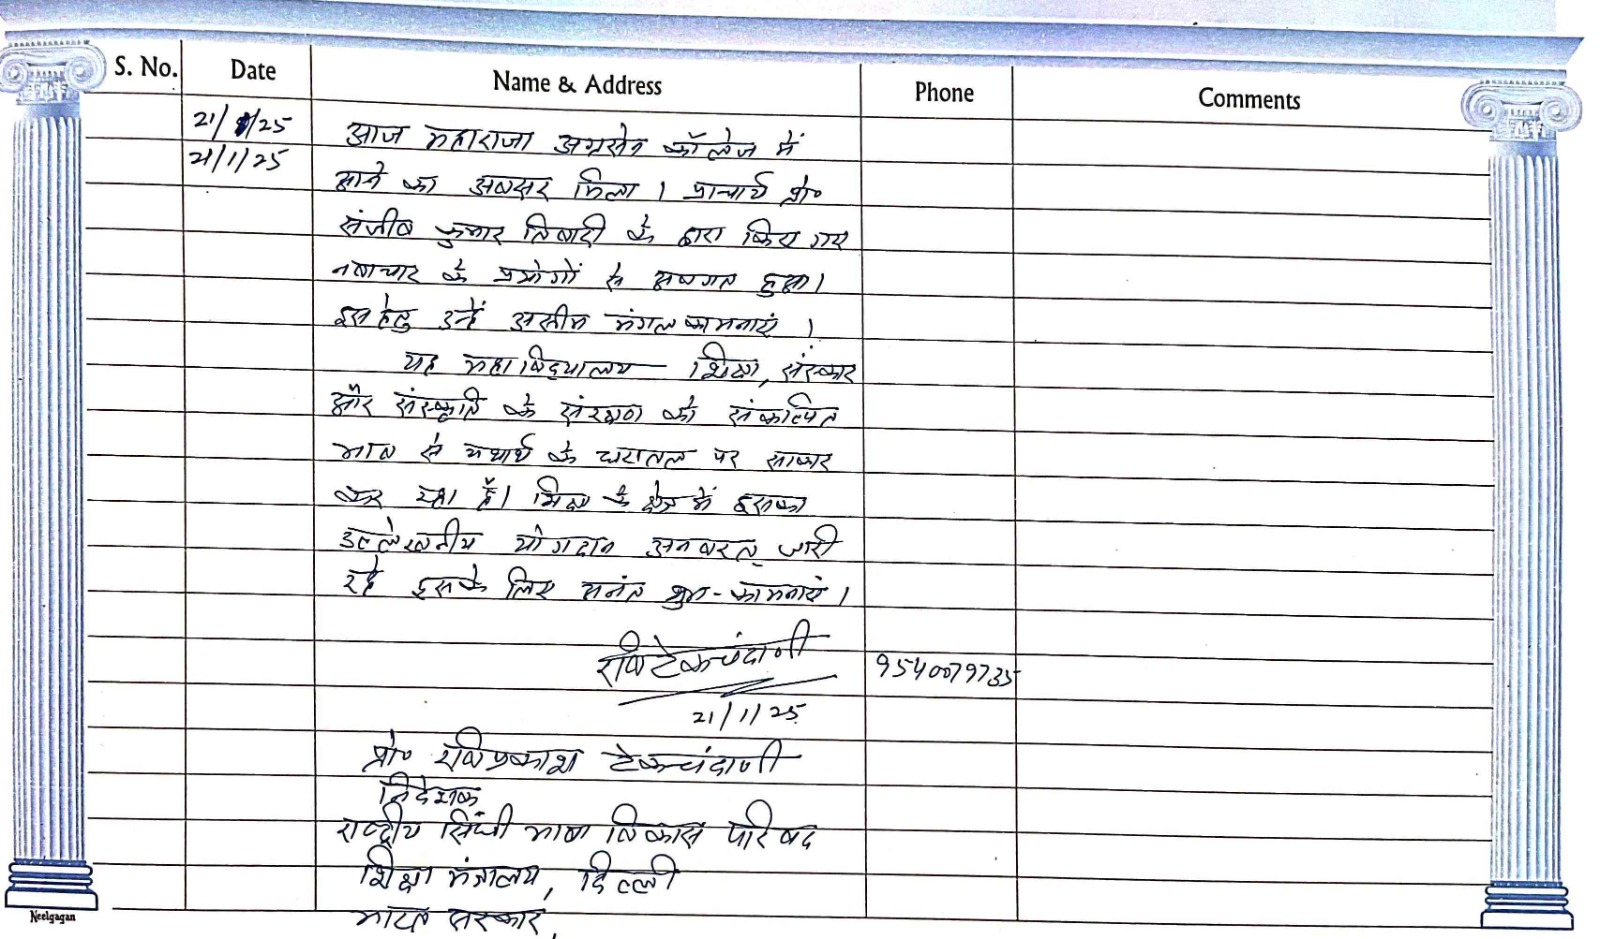 S. No. Date Name & Address Phone Comments
21/1/25
21/1/25
आज महाराजा अग्रसेन कॉलेज में
आने का अवसर मिला। प्राचार्य प्रो॰
संजीव कुमार तिवारी के द्वारा किए गए
नवाचार के प्रयोगों से अवगत हुआ।
इस हेतु उन्हें असीम मंगलकामनाएं।
यह महाविद्यालय शिक्षा, संस्कार
और संस्कृति के संरक्षण को संकल्पित
भाव से यथार्थ के धरातल पर साकार
कर रहा है। शिक्षा के क्षेत्र में इसका
उल्लेखनीय योगदान अनवरत् जारी
रहे इसके लिए अनंत शुभ-कामनाएं।
रवि टेकचंदाणी 9540079735
21/1/25
प्रो॰ रविप्रकाश टेकचंदाणी
निदेशक
राष्ट्रीय सिंधी भाषा विकास परिषद
शिक्षा मंत्रालय, दिल्ली
भारत सरकार,
Neelgagan